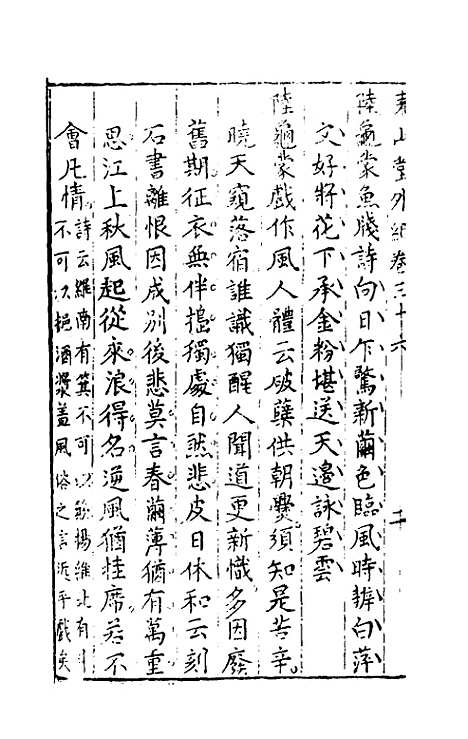 堯山堂外紀卷三十六 二
陸龜蒙魚牋詩向日乍驚新繭色臨風時辨白萍
文好將花下承金粉堪送天邊詠碧雲
陸龜蒙戲作風人體云破蘖供朝爨須知是苦辛
曉天窺落宿誰識獨醒人聞道更新幟多因廢
舊期征衣無伴搗獨處自然悲皮日休和云刻
石書離恨因成別後悲莫言春繭薄猶有萬重
思江上秋風起從來浪得名逆風猶挂席若不
會凡情詩云維南有箕不可以簸揚維北有斗
不可以挹酒漿蓋風俗之言近乎戲矣